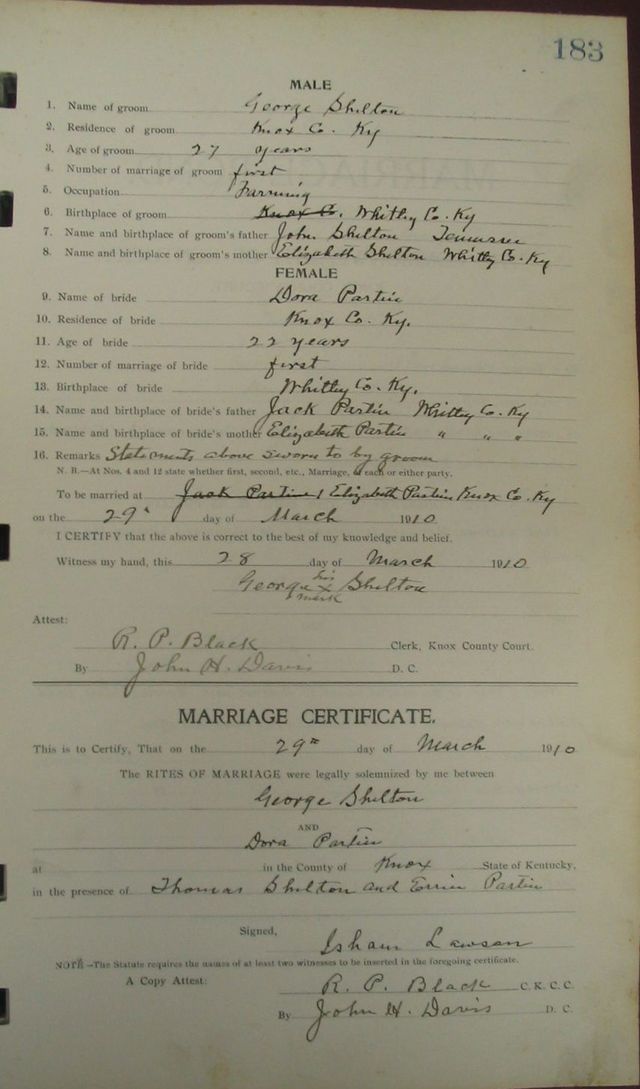 183
MALE
1. Name of groom George Shilton
2. Residence of groom Knox Co. Ky
3. Age of groom 27 years
4. Number of marriage of groom first
5. Occupation Farming
6. Birthplace of groom Knox Co. Whitley Co. Ky
7. Name and birthplace of groom's father John Shilton Tennessee
8. Name and birthplace of groom's mother Elizabeth Shelton Whitley Co. Ky
FEMALE
9. Name of bride Dora Partin
10. Residence of bride Knox Co. Ky.
11. Age of bride 22 years
12. Number of marriage of bride first
13. Birthplace of bride Whitley Co. Ky.
14. Name and birthplace of bride's father Jack Partin Whitley Co. Ky
15. Name and birthplace of bride's mother Elizabeth Partin " " "
16. Remarks Statements above sworn to by groom
N. B.—At Nos. 4 and 12 state whether first, second, etc., Marriage, of each or either party.
To be married at Jack Partins Elizabeth Partin Knox Co. Ky
on the 29" day of March 1910
I CERTIFY that the above is correct to the best of my knowledge and belief.
Witness my hand, this 28 day of March 1910
George his x mark Shilton
Attest:
R. P. Black Clerk, Knox County Court.
By John H. Davis D. C.
MARRIAGE CERTIFICATE.
This is to Certify, That on the 29th day of March 1910
The RITES OF MARRIAGE were legally solemnized by me between
George Shilton
AND
Dora Partin
at in the County of Knox State of Kentucky,
in the presence of Thomas Shilton and Partin
Signed,
Isham Lawson
NOTE—The Statute requires the names of at least two witnesses to be inserted in the foregoing certificate.
A Copy Attest: R. P. Black C. K. C. C.
By John H. Davis D. C.